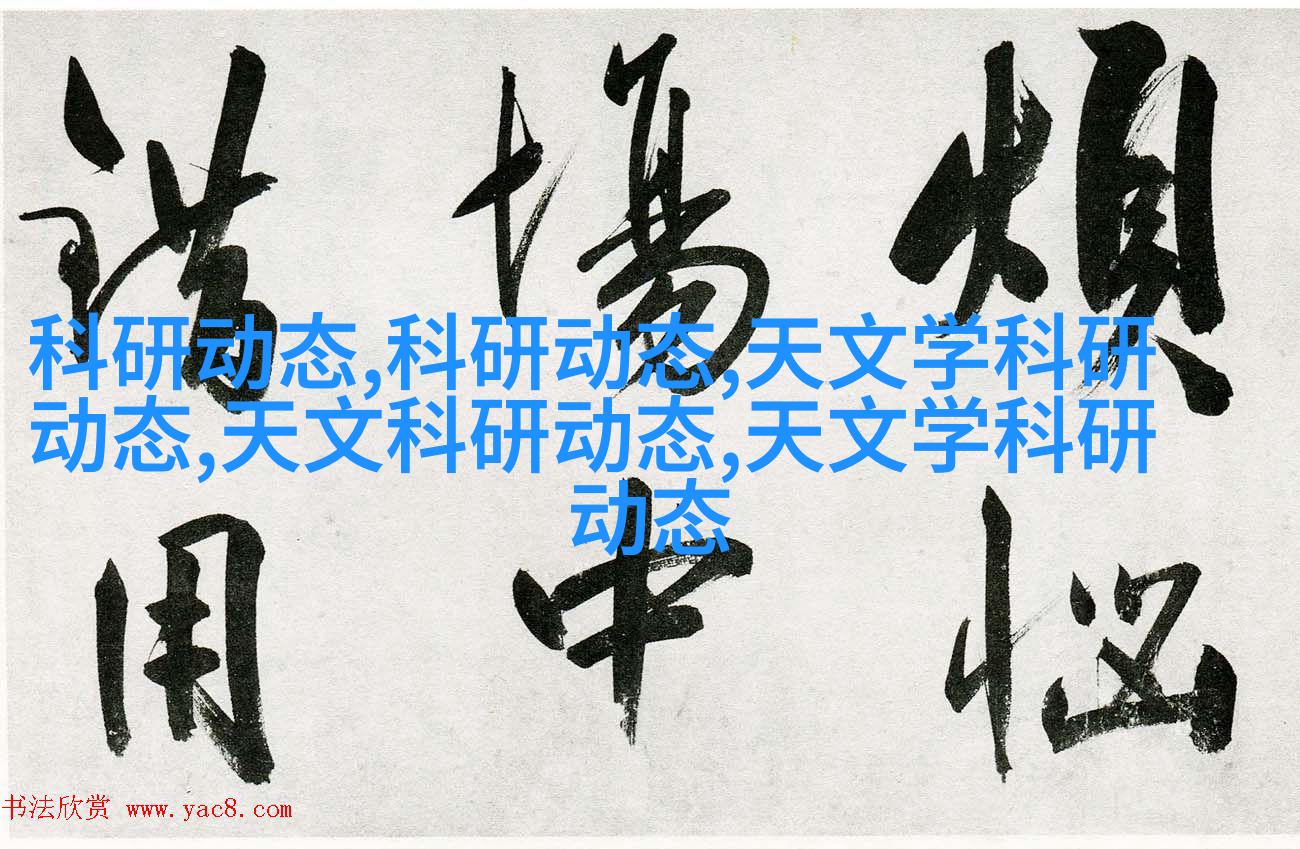 煩惱
場中
錯用
科研动态,科研动态,天文学科研
动态,天文科研动态,天文学科研
动态
书法欣赏 www.yac8.com